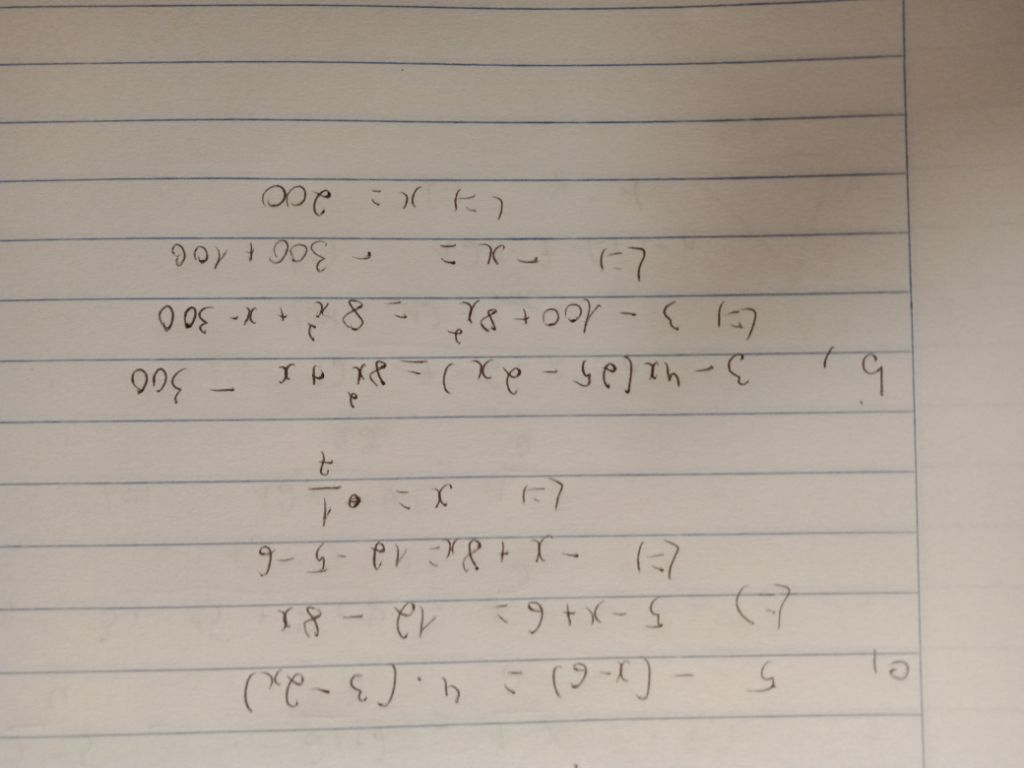 a, 5 - (x-6) = 4. (3-2x)
(=) 5-x+6 = 12 - 8x
(=) -x+8x = 12-5-6
(=) x = 1/7
b, 3-4x(25-2x) = 8x² + x - 300
(=) 3 - 100+8x² = 8x² + x - 300
(=) -x = -300+100
(=) x = 200